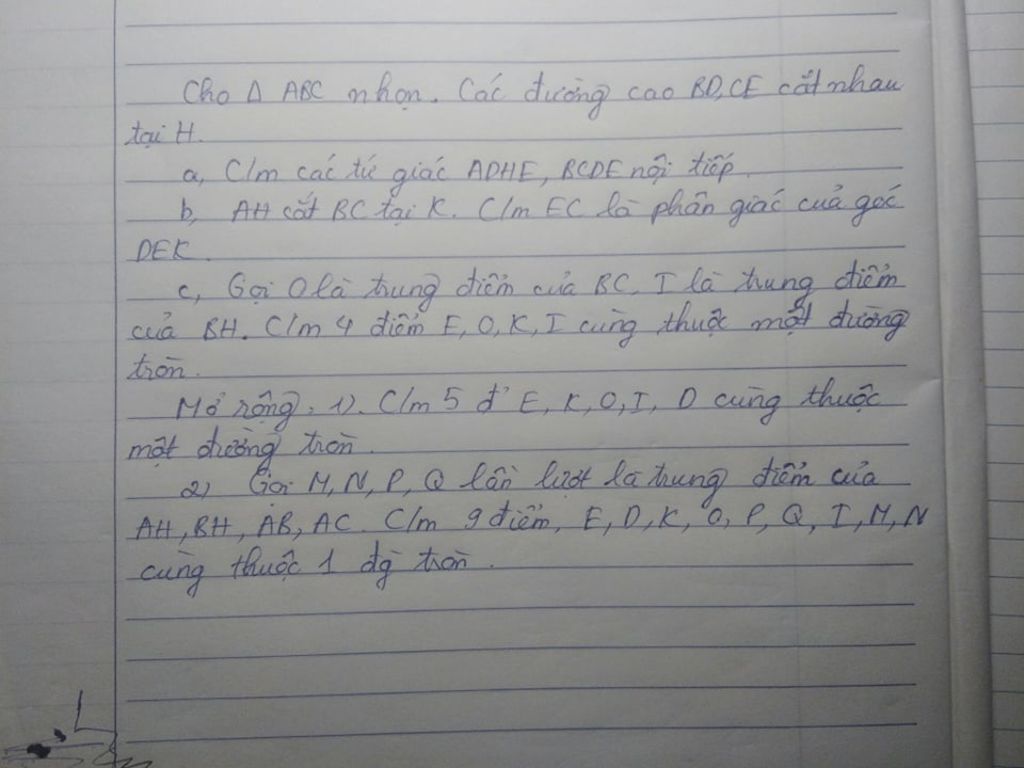 Cho Δ ABC nhọn. Các đường cao BD, CE cắt nhau
tại H.
a, C/m các tứ giác ADHE, BCDE nội tiếp.
b, AH cắt BC tại K. C/m EC là phân giác của góc
DEK.
c, Gọi O là trung điểm của BC, I là trung điểm
của BH. C/m 4 điểm E, O, K, I cùng thuộc một đường
tròn.
Mở rộng: 1). C/m 5 đ' E, K, O, I, D cùng thuộc
một đường tròn.
2) Gọi M, N, P, Q lần lượt là trung điểm của
AH, BH, AB, AC. C/m 9 điểm, E, D, K, O, P, Q, I, M, N
cùng thuộc 1 đg tròn.